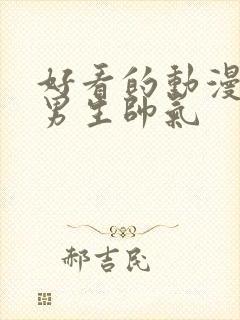 好看的動漫
男生帥氣
郝吉民